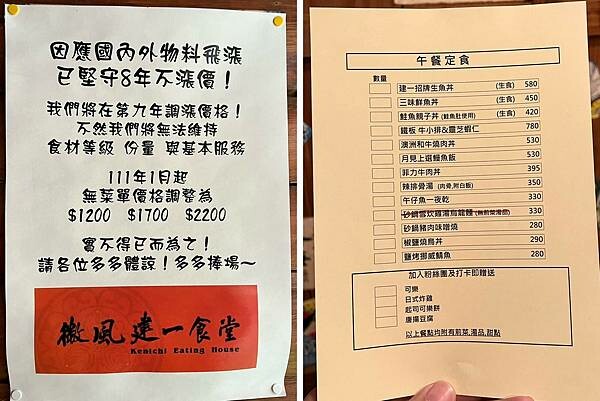 因應國內外物料飛漲
已堅守8年不漲價！
我們將在第九年調漲價格！
不然我們將無法維持
食材等級 份量 與基本服務
111年1月起
無菜單價格調整為
$1200 $1700 $2200
實不得已而為之！
請各位多多體諒！多多捧場～
微風建一食堂
Kenichi Eating House
午餐定食
數量
建一招牌生魚丼 (生食) 580
三味鮮魚丼 (生食) 450
鮭魚親子丼 (鮭魚肚使用) (生食) 420
鐵板 牛小排&靈芝蝦仁 780
澳洲和牛燒肉丼 530
月見上選鰻魚飯 530
菲力牛肉丼 395
辣排骨湯 (肉骨,附白飯) 350
午仔魚一夜乾 330
砂鍋雪炊雞湯烏龍麵 (無前菜湯品) 330
砂鍋豬肉味噌燒 280
椒鹽燒鳥丼 290
鹽烤挪威鯖魚 280
加入粉絲團及打卡即贈送
可樂
日式炸雞
起司可樂餅
唐揚豆腐
以上餐點均附有前菜,湯品,甜點